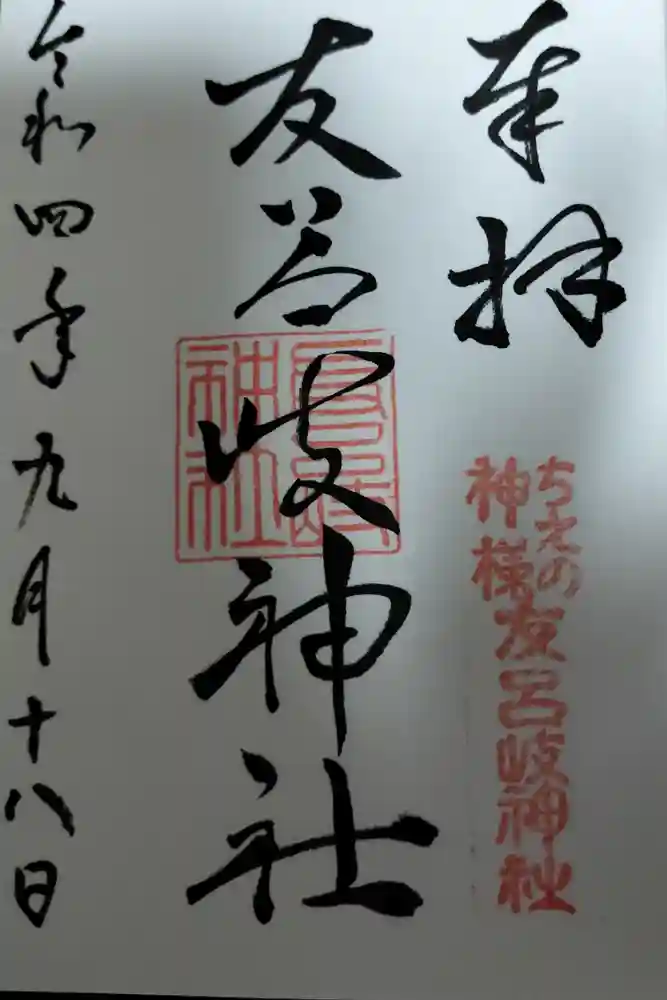 奉拝
ちえの
神様
友呂岐神社
友呂岐神社
令和四年九月十八日